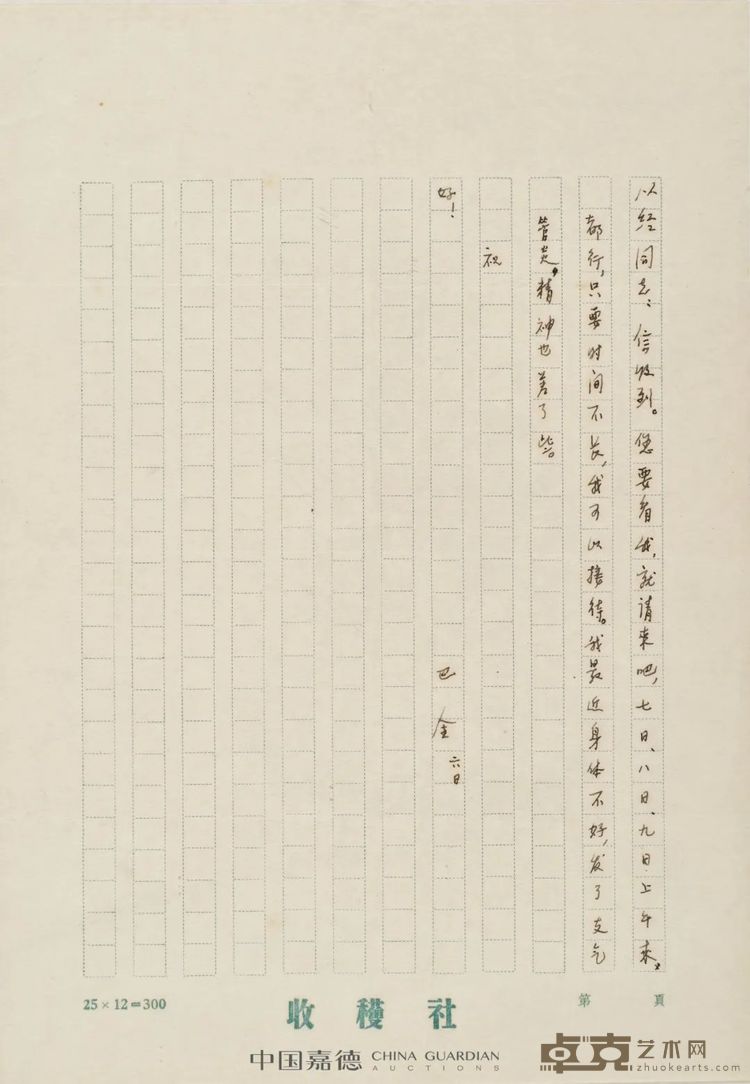 以经同志：信收到。您要看我，就请来吧，七日、八日、九日上午来，
都行，只要时间不长，我可以接待。我最近身体不好，发了支气
管炎，精神也差了些。
祝
好！
巴金
六日
25×12=300
收穫社
第 頁
中国嘉德 CHINA GUARDIAN
AUCTIONS
卓克艺术网
zhuokearts.com